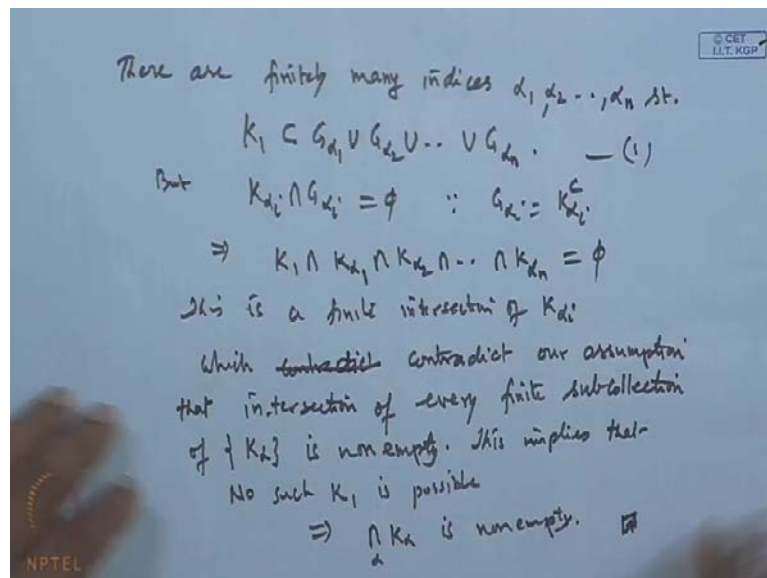 © CET
I.I.T. KGP
There are finitely many indices α₁, α₂ --, αₙ st.
K₁ ⊂ G_α₁ ∪ G_α₂ ∪ .. ∪ G_αₙ. — (1)
But K_αᵢ ∩ G_αᵢ = φ ∵ G_αᵢ = K_αᵢᶜ
⇒ K₁ ∩ K_α₁ ∩ K_α₂ ∩ .. ∩ K_αₙ = φ
This is a finite intersection of K_αᵢ
which contradict contradict our assumption
that intersection of every finite subcollection
of {K_α} is nonempty. This implies that
No such K₁ is possible
⇒ ∩_α K_α is nonempty.
NPTEL